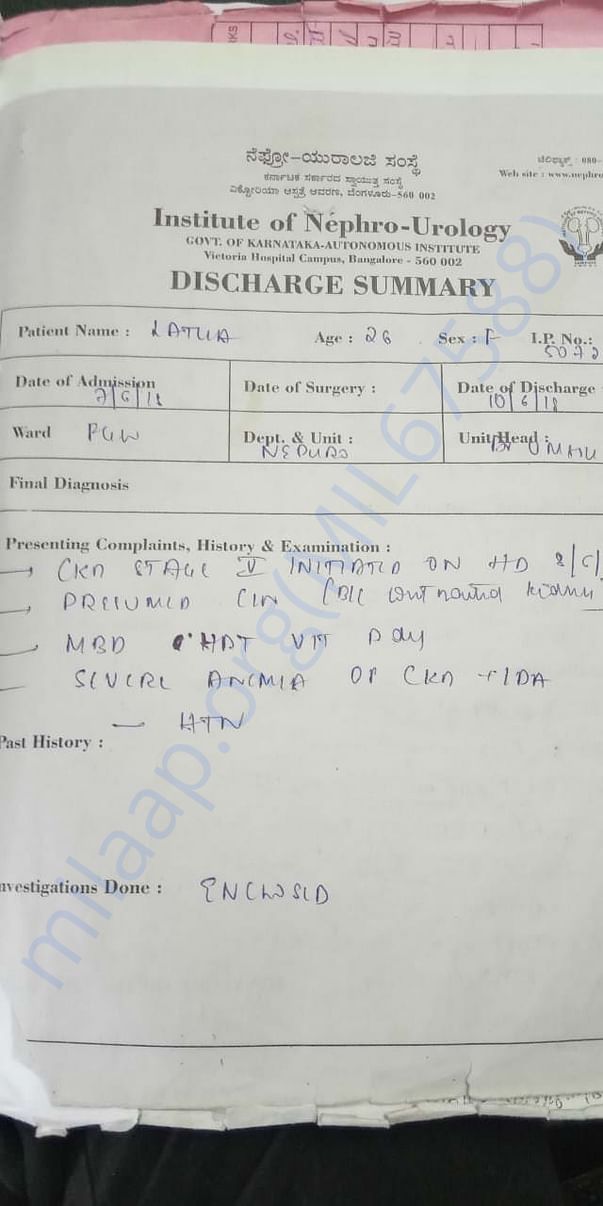 ನೆಫ್ರೋ–ಯುರಾಲಜಿ ಸಂಸ್ಥೆ
ಕರ್ನಾಟಕ ಸರ್ಕಾರದ ಸ್ವಾಯುತ್ತ ಸಂಸ್ಥೆ
ವಿಕ್ಟೋರಿಯಾ ಆಸ್ಪತ್ರೆ ಆವರಣ, ಬೆಂಗಳೂರು-560 002
080-
Web site : www.nephro
Institute of Nephro-Urology
GOVT. OF KARNATAKA-AUTONOMOUS INSTITUTE
Victoria Hospital Campus, Bangalore - 560 002
DISCHARGE SUMMARY
Patient Name : Age : 26 Sex : F I.P. No.:
Date of Admission Date of Surgery : Date of Discharge
10/6/18
Ward Dept. & Unit : Unit Head :
Final Diagnosis
Presenting Complaints, History & Examination :
CKD STAGE V INITIATED ON HD
PRESUMED CIN
MBD VIT
SEVERE ANEMIA OF CKD + IDA
HTN
Past History :
nvestigations Done : ENCLOSED
milaap.org(MIL67588)